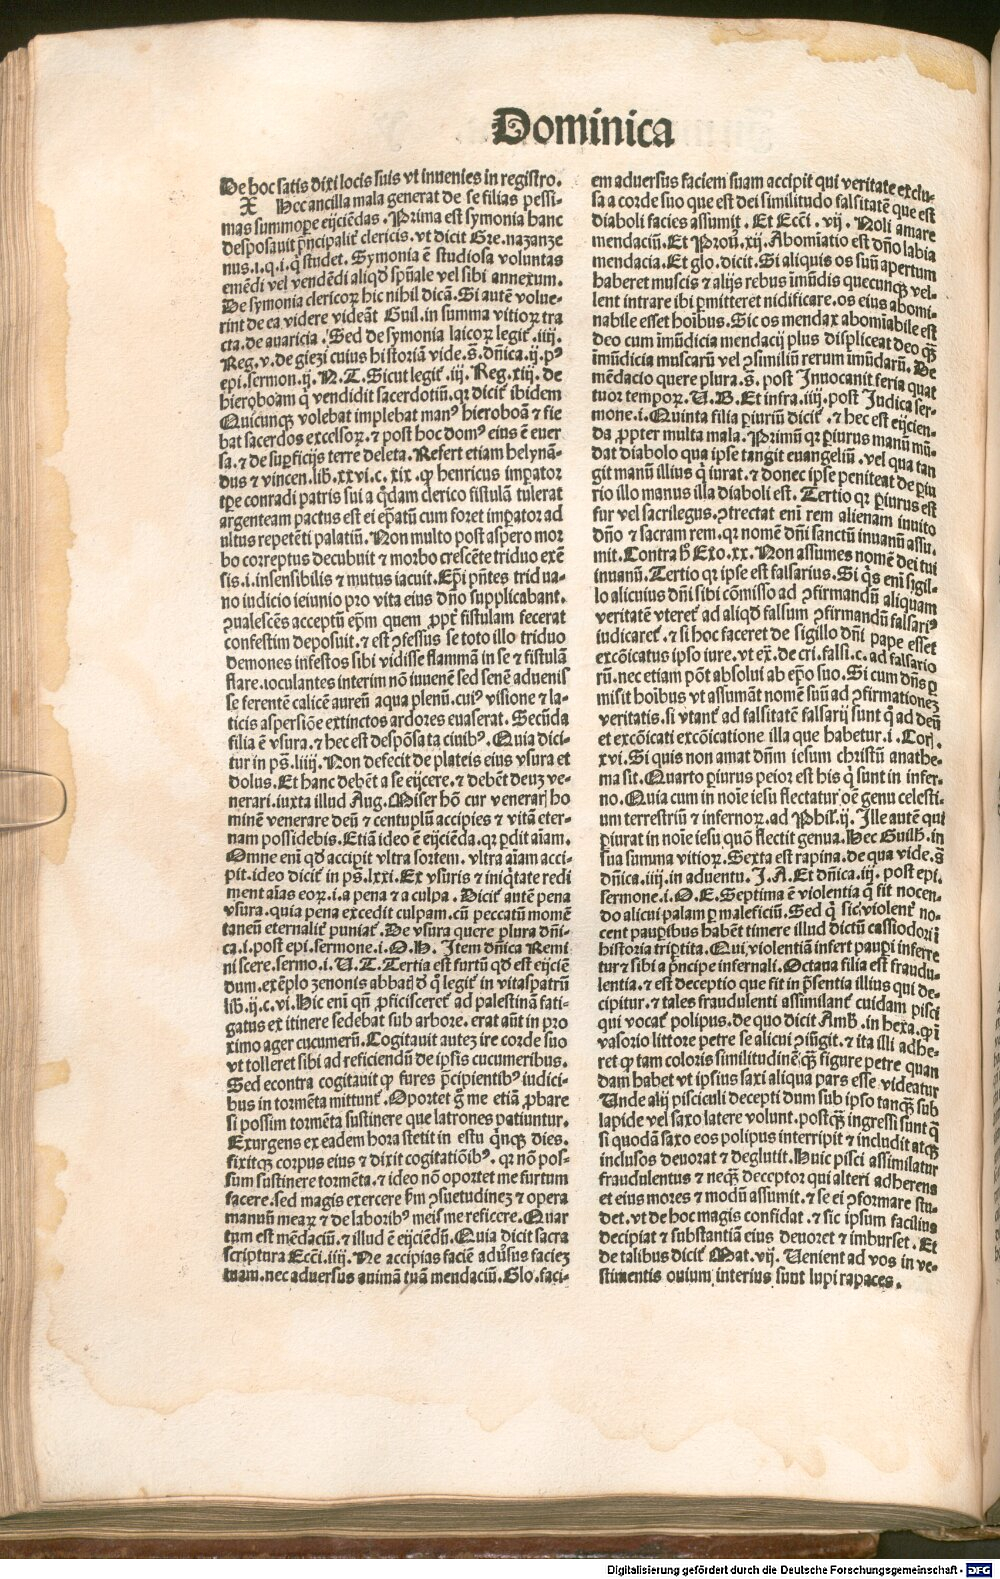 Dominica
De hoc satis dixi locis suis vt inuenies in registro.
X Hec ancilla mala generat de se filias pessi-
mas summoꝑe eijciēdas. Prima est symonia hanc
desposauit pͥncipalit̄ clericis. vt dicit Gre. nazanze
nus. i. q. i. qͥ studet. Symonia ē studiosa voluntas
emēdi vel vendēdi aliqd̄ spūale vel sibi annexum.
De symonia clericoꝝ hic nihil dicā. Si autē volue-
rint de ea videre videāt Guil. in summa vitioꝝ tra
cta. de auaricia. Sed de symonia laicoꝝ legit̄. iiij.
Reg. v. de giezi cuius historiā vide. s̄. dn̄ica. ij. pꝰ
epi. sermon. ij. N. T. Sicut legit̄. iij. Reg. xiij. de
hieroboam qͥ vendidit sacerdotiū. qꝛ dicit̄ ibidem
Quicunqꝫ volebat implebat manꝰ hieroboā ⁊ fie
bat sacerdos excelsoꝝ. ⁊ post hoc domꝰ eius ē euer
sa. ⁊ de suꝑficijs terre deleta. Refert etiam helynā-
dus ⁊ vincen. lib̄. xxvi. c. xix. ꝙ henricus imꝑator
tꝑe conradi patris sui a qͦdam clerico fistulā tulerat
argenteam pactus est ei ep̄atū cum foret imꝑator ad
ultus repetēti palatiū. Non multo post aspero mor
bo correptus decubuit ⁊ morbo crescēte triduo exē
sis. i. insensibilis ⁊ mutus iacuit. Ep̄i pn̄tes tridua-
no iudicio ieiunio pro vita eius dn̄o supplicabant.
Ↄualescēs acceptū ep̄m quem ꝓpt̄ fistulam fecerat
confestim deposuit. ⁊ est ↄfessus se toto illo triduo
demones infestos sibi vidisse flammā in se ⁊ fistulā
flare. ioculantes interim nō iuuenē sed senē aduenis
se ferentē calicē aureū aqua plenū. cuiꝰ visione ⁊ la-
ticis aspersiōe extinctos ardores euaserat. Secūda
filia ē vsura. ⁊ hec est despōsata ciuibꝰ. Quia dici-
tur in ps̄. liiij. Non defecit de plateis eius vsura et
dolus. Et hanc debēt a se eijcere. ⁊ debēt deuꝫ ve-
nerari. iuxta illud Aug. Miser hō cur venerar̄ ho
minē venerare deū ⁊ centuplū accipies ⁊ vitā eter-
nam possidebis. Etiā ideo ē eijciēda. qꝛ ꝑdit aīam.
Omne eni qd̄ accipit vltra sortem. vltra aīam acci-
pit. ideo dicit̄ in ps̄. lxxi. Ex vsuris ⁊ iniqͥtate redi
ment aīas eoꝝ. i. a pena ⁊ a culpa. Dicit̄ autē pena
vsura. quia pena excedit culpam. cū peccatū momē
taneū eternalit̄ puniat̄. De vsura quere plura dn̄i-
ca. i. post epi. sermone. i. O. H. Item dn̄ica Remi
niscere. sermo. i. U. T. Tertia est furtū qd̄ est eijciē
dum. exēplo zenonis abbatis qͥ legit̄ in vitaspatrū
lib̄. ij. c. vi. Hic eni qn̄ ꝓficisceret̄ ad palestinā fati-
gatus ex itinere sedebat sub arbore. erat aūt in pro
ximo ager cucumerū. Cogitauit auteꝫ ire corde suo
vt tolleret sibi ad reficiendū de ipsis cucumeribus.
Sed econtra cogitauit ꝙ fures pͥcipientibꝰ iudici-
bus in tormēta mittunt̄. Oportet g̊ me etiā ꝓbare
si possim tormēta sustinere que latrones patiuntur.
Exurgens ex eadem hora stetit in estu qͥnqꝫ dies.
fixitqꝫ corpus eius ⁊ dixit cogitatiōibꝰ. qꝛ nō pos-
sum sustinere tormēta. ⁊ ideo nō oportet me furtum
facere. sed magis exercere b̄m ↄsuetudineꝫ ⁊ opera
manuū meaꝝ ⁊ de laboribꝰ meis me reficere. Quar
tum est mēdaciū. ⁊ illud ē eijciēdū. Quia dicit sacra
scriptura Ecci. iiij. Ne accipias faciē adu̓sus facieꝫ
tuam. nec aduersus animā tuā mendaciū. Glo. faci-
em aduersus faciem suam accipit qui veritate exclu-
sa a corde suo que est dei similitudo falsitatē que est
diaboli facies assumit. Et Ecci. vij. Noli amare
mendaciū. Et Prou̓. xij. Abomīatio est dn̄o labia
mendacia. Et glo. dicit. Si aliquis os suū apertum
haberet muscis ⁊ alijs rebus īmūdis quecunqꝫ vel-
lent intrare ibi ꝑmitteret nidificare. os eius abomi-
nabile esset hoībus. Sic os mendax abomīabile est
deo cum īmūdicia mendacij plus displiceat deo qͣꝫ
īmūdicia muscarū vel ↄsimiliū rerum imūdarū. De
mēdacio quere plura. s̄. post Inuocauit feria quat
tuor tempoꝝ. U. B. Et infra. iiij. post Iudica ser-
mone. i. Quinta filia ꝑiuriū dicit̄. ⁊ hec est eijcien-
da ꝓpter multa mala. Primū qꝛ ꝑiurus manū mū-
dat diabolo qua ipse tangit euangeliū. vel qua tan
git manū illius qͥ iurat. ⁊ donec ipse peniteat de ꝑiu
rio illo manus illa diaboli est. Tertio qꝛ ꝑiurus est
fur vel sacrilegus. ↄtrectat eni rem alienam inuito
dn̄o ⁊ sacram rem. qꝛ nomē dn̄i sanctū inuanū assu-
mit. Contra h̄ Exo. xx. Non assumes nomē dei tui
inuanū. Tertio qꝛ ipse est falsarius. Si qͥs eni sigil-
lo alicuius dn̄i sibi cōmisso ad ↄfirmandū aliquam
veritatē vteret̄ ad aliqd̄ falsum ↄfirmandū falsariꝰ
iudicaret̄. ⁊ si hoc faceret de sigillo dn̄i pape esset
excōicatus ipso iure. vt ex̄. de cri. falsi. c. ad falsario
rū. nec etiam pōt absolui ab ep̄o suo. Si cum dn̄s ꝑ
misit hoībus vt assumāt nomē suū ad ↄfirmationeꝫ
veritatis. si vtant̄ ad falsitatē falsarij sunt qͥ ad deū
et excōicati excōicatione illa que habetur. i. Corj.
xvi. Si quis non amat dn̄m iesum christū anathe-
ma sit. Quarto ꝑiurus peior est his qͥ sunt in infer-
no. Quia cum in noīe iesu flectatur oē genu celesti-
um terrestriū ⁊ infernoꝝ. ad Phil. ij. Ille autē qui
ꝑiurat in noīe iesu quō flectit genua. Hec Guilh̄. in
sua summa vitioꝝ. Sexta est rapina. de qua vide. s̄
dn̄ica. iiij. in aduentu. I. A. Et dn̄ica. iij. post epi.
sermone. i. O. E. Septima ē violentia q̄ fit nocen-
do alicui palam ꝑ maleficiū. Sed qͥ sic violent̄ no-
cent pauꝑibus habēt timere illud dictū cassiodori ī
historia tripͥtita. Qui violentiā infert pauꝑi inferre
tur ⁊ sibi a pͥncipe infernali. Octaua filia est fraudu-
lentia. ⁊ est deceptio que fit in pͥsentia illius qui de-
cipitur. ⁊ tales fraudulenti assimilant̄ cuidam pisci
qui vocat̄ polipus. de quo dicit Amb̄. in hexa. ꝙ ī
vasorio littore petre se alicui ↄiūgit. ⁊ ita illi adhe-
ret ꝙ tam coloris similitudinē qͣꝫ figure petre quan
dam habet vt ipsius saxi aliqua pars esse videatur
Unde alij pisciculi decepti dum sub ipso tanqͣꝫ sub
lapide vel saxo latere volunt. postqͣꝫ ingressi sunt qͣ
si quodā saxo eos polipus interripit ⁊ includit atqꝫ
inclusos deuorat ⁊ deglutit. Huic pisci assimilatur
fraudulentus ⁊ neqͣꝫ deceptor qui alteri adherens
et eius mores ⁊ modū assumit. ⁊ se ei ↄformare stu-
det. vt de hoc magis confidat. ⁊ sic ipsum facilius
decipiat ⁊ substantiā eius deuoret ⁊ imburset. Et
de talibus dicit̄ Mat. vij. Uenient ad vos in ve-
stimentis ouium interius sunt lupi rapaces.
Digitalisierung gefördert durch die Deutsche Forschungsgemeinschaft - DFG